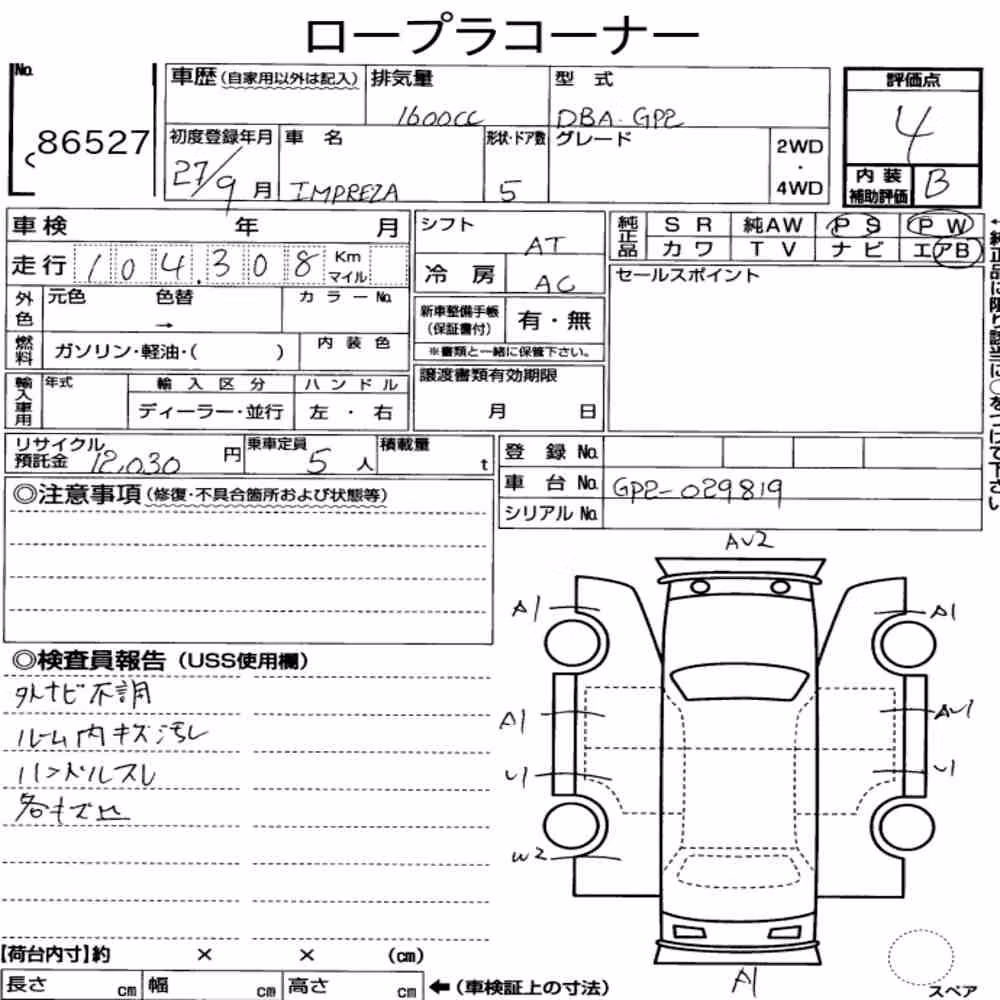 ロープラコーナー
No.
86527
車歴(自家用以外は記入)
排気量
1600cc
型式
DBA-GP2
評価点
4
初度登録年月
27/9月
車名
IMPREZA
形状・ドア数
5
グレード
2WD
・
4WD
内装
補助評価
B
車検 年 月
走行 104,308 Km マイル
シフト
AT
冷房
AC
純正品
SR 純AW PS PW
カワ TV ナビ エアB
←純正品に限り該当に○をつけて下さい
セールスポイント
外色
元色 色替
→
カラーNo.
新車整備手帳
(保証書付)
有・無
※書類と一緒に保管下さい。
燃料
ガソリン・軽油・( )
内装色
譲渡書類有効期限
月 日
輸入車用
年式
輸入区分
ハンドル
ディーラー・並行
左・右
リサイクル
預託金
12,030 円
乗車定員
5人
積載量
t
登録No.
車台No.
GP2-029819
シリアルNo.
◎注意事項(修復・不具合箇所および状態等)
◎検査員報告(USS使用欄)
外ナビ不調
ルーム内キズ汚レ
ハンドルスレ
各キズ凹
AU2
A1
A1
A1
AU1
U1
U1
W2
A1
スペア
【荷台内寸】約 × × (cm)
長さ cm 幅 cm 高さ cm ←(車検証上の寸法)